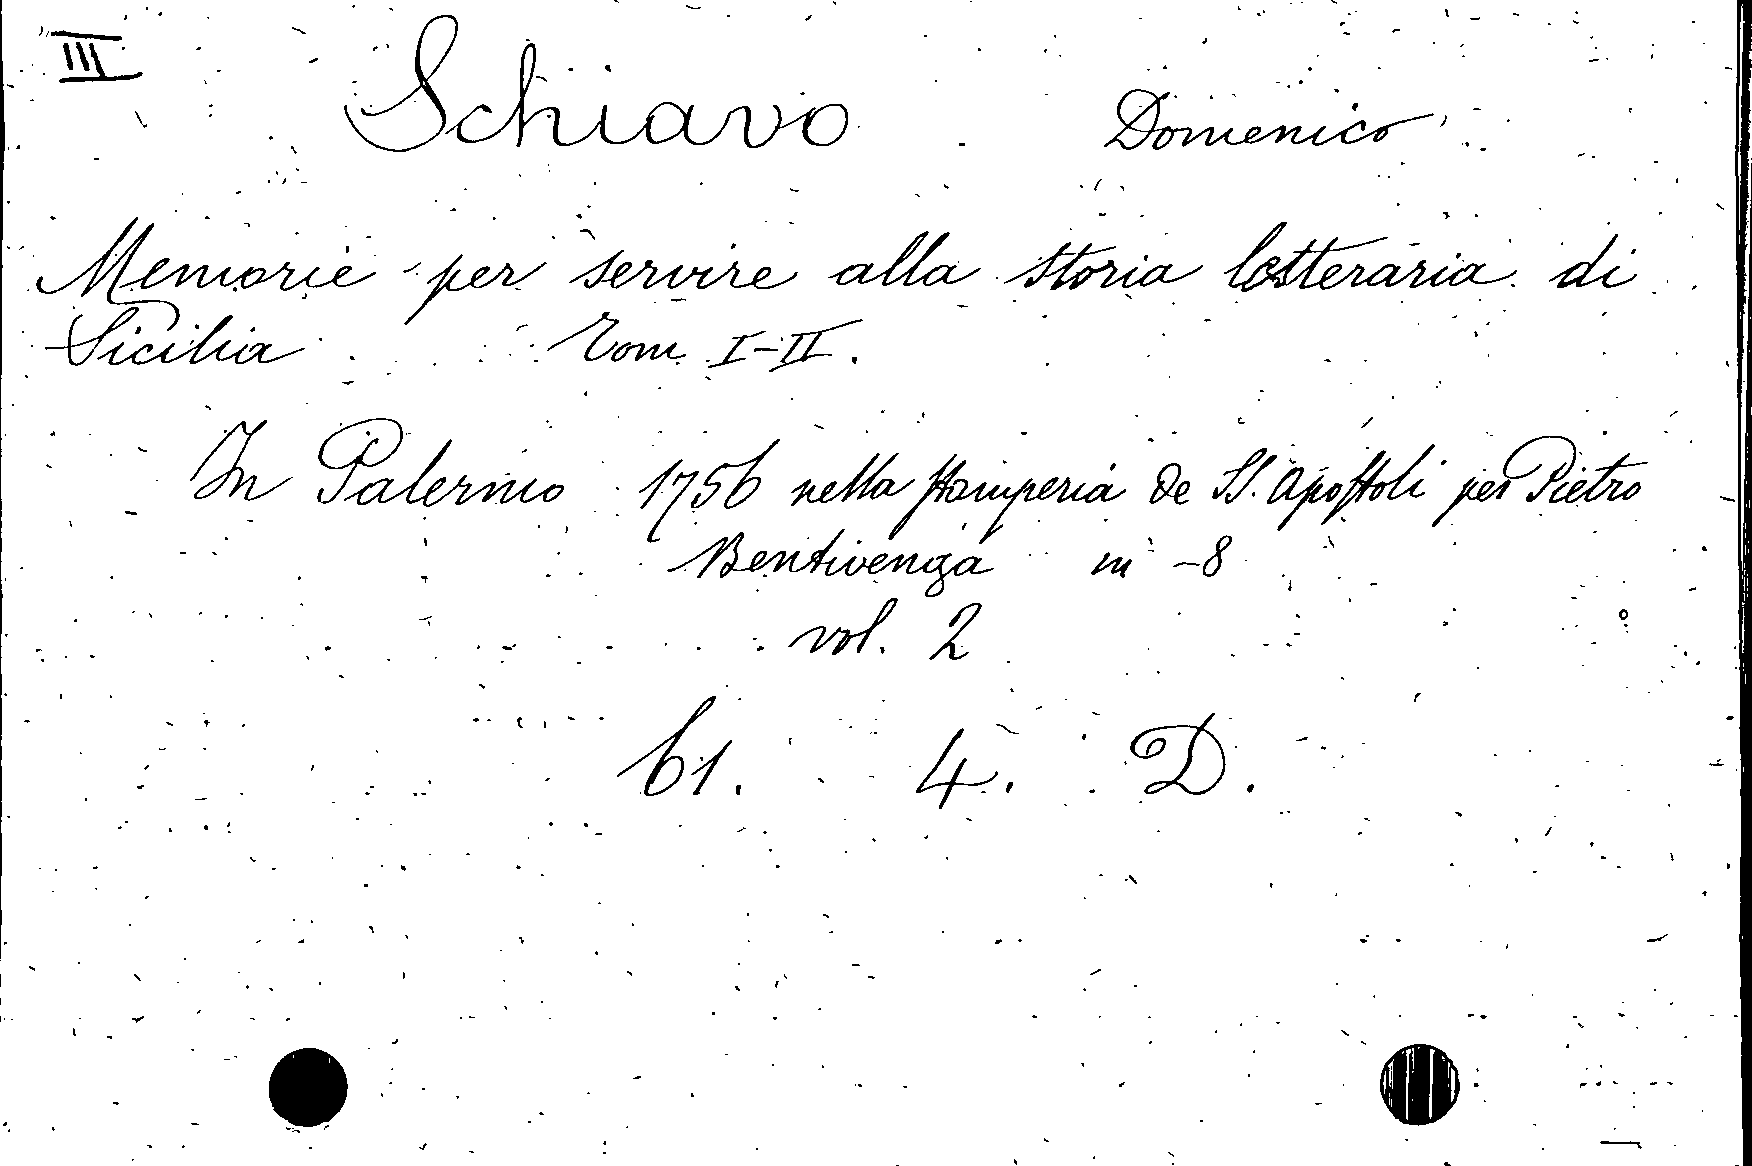 III
Schiavo Domenico
Memorie per servire alla storia letteraria di
Sicilia Tom I-II.
In Palermo 1756 nella stamperia de SS. Apostoli per Pietro
Bentivenga in -8
vol. 2
61. 4. D.